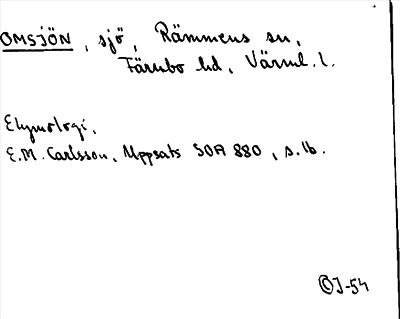 OMSJÖN, sjö, Rämmens sn,
Färnbo hd, Värml. l.
Etymologi.
E.M. Carlsson, Uppsats SOA 880, s. 1b.
©J-54